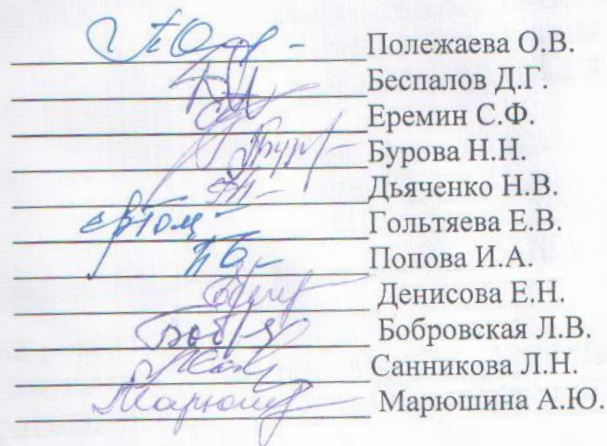 Полежаева О.В.
Беспалов Д.Г.
Еремин С.Ф.
Бурова Н.Н.
Дьяченко Н.В.
Гольтяева Е.В.
Попова И.А.
Денисова Е.Н.
Бобровская Л.В.
Санникова Л.Н.
Марюшина А.Ю.